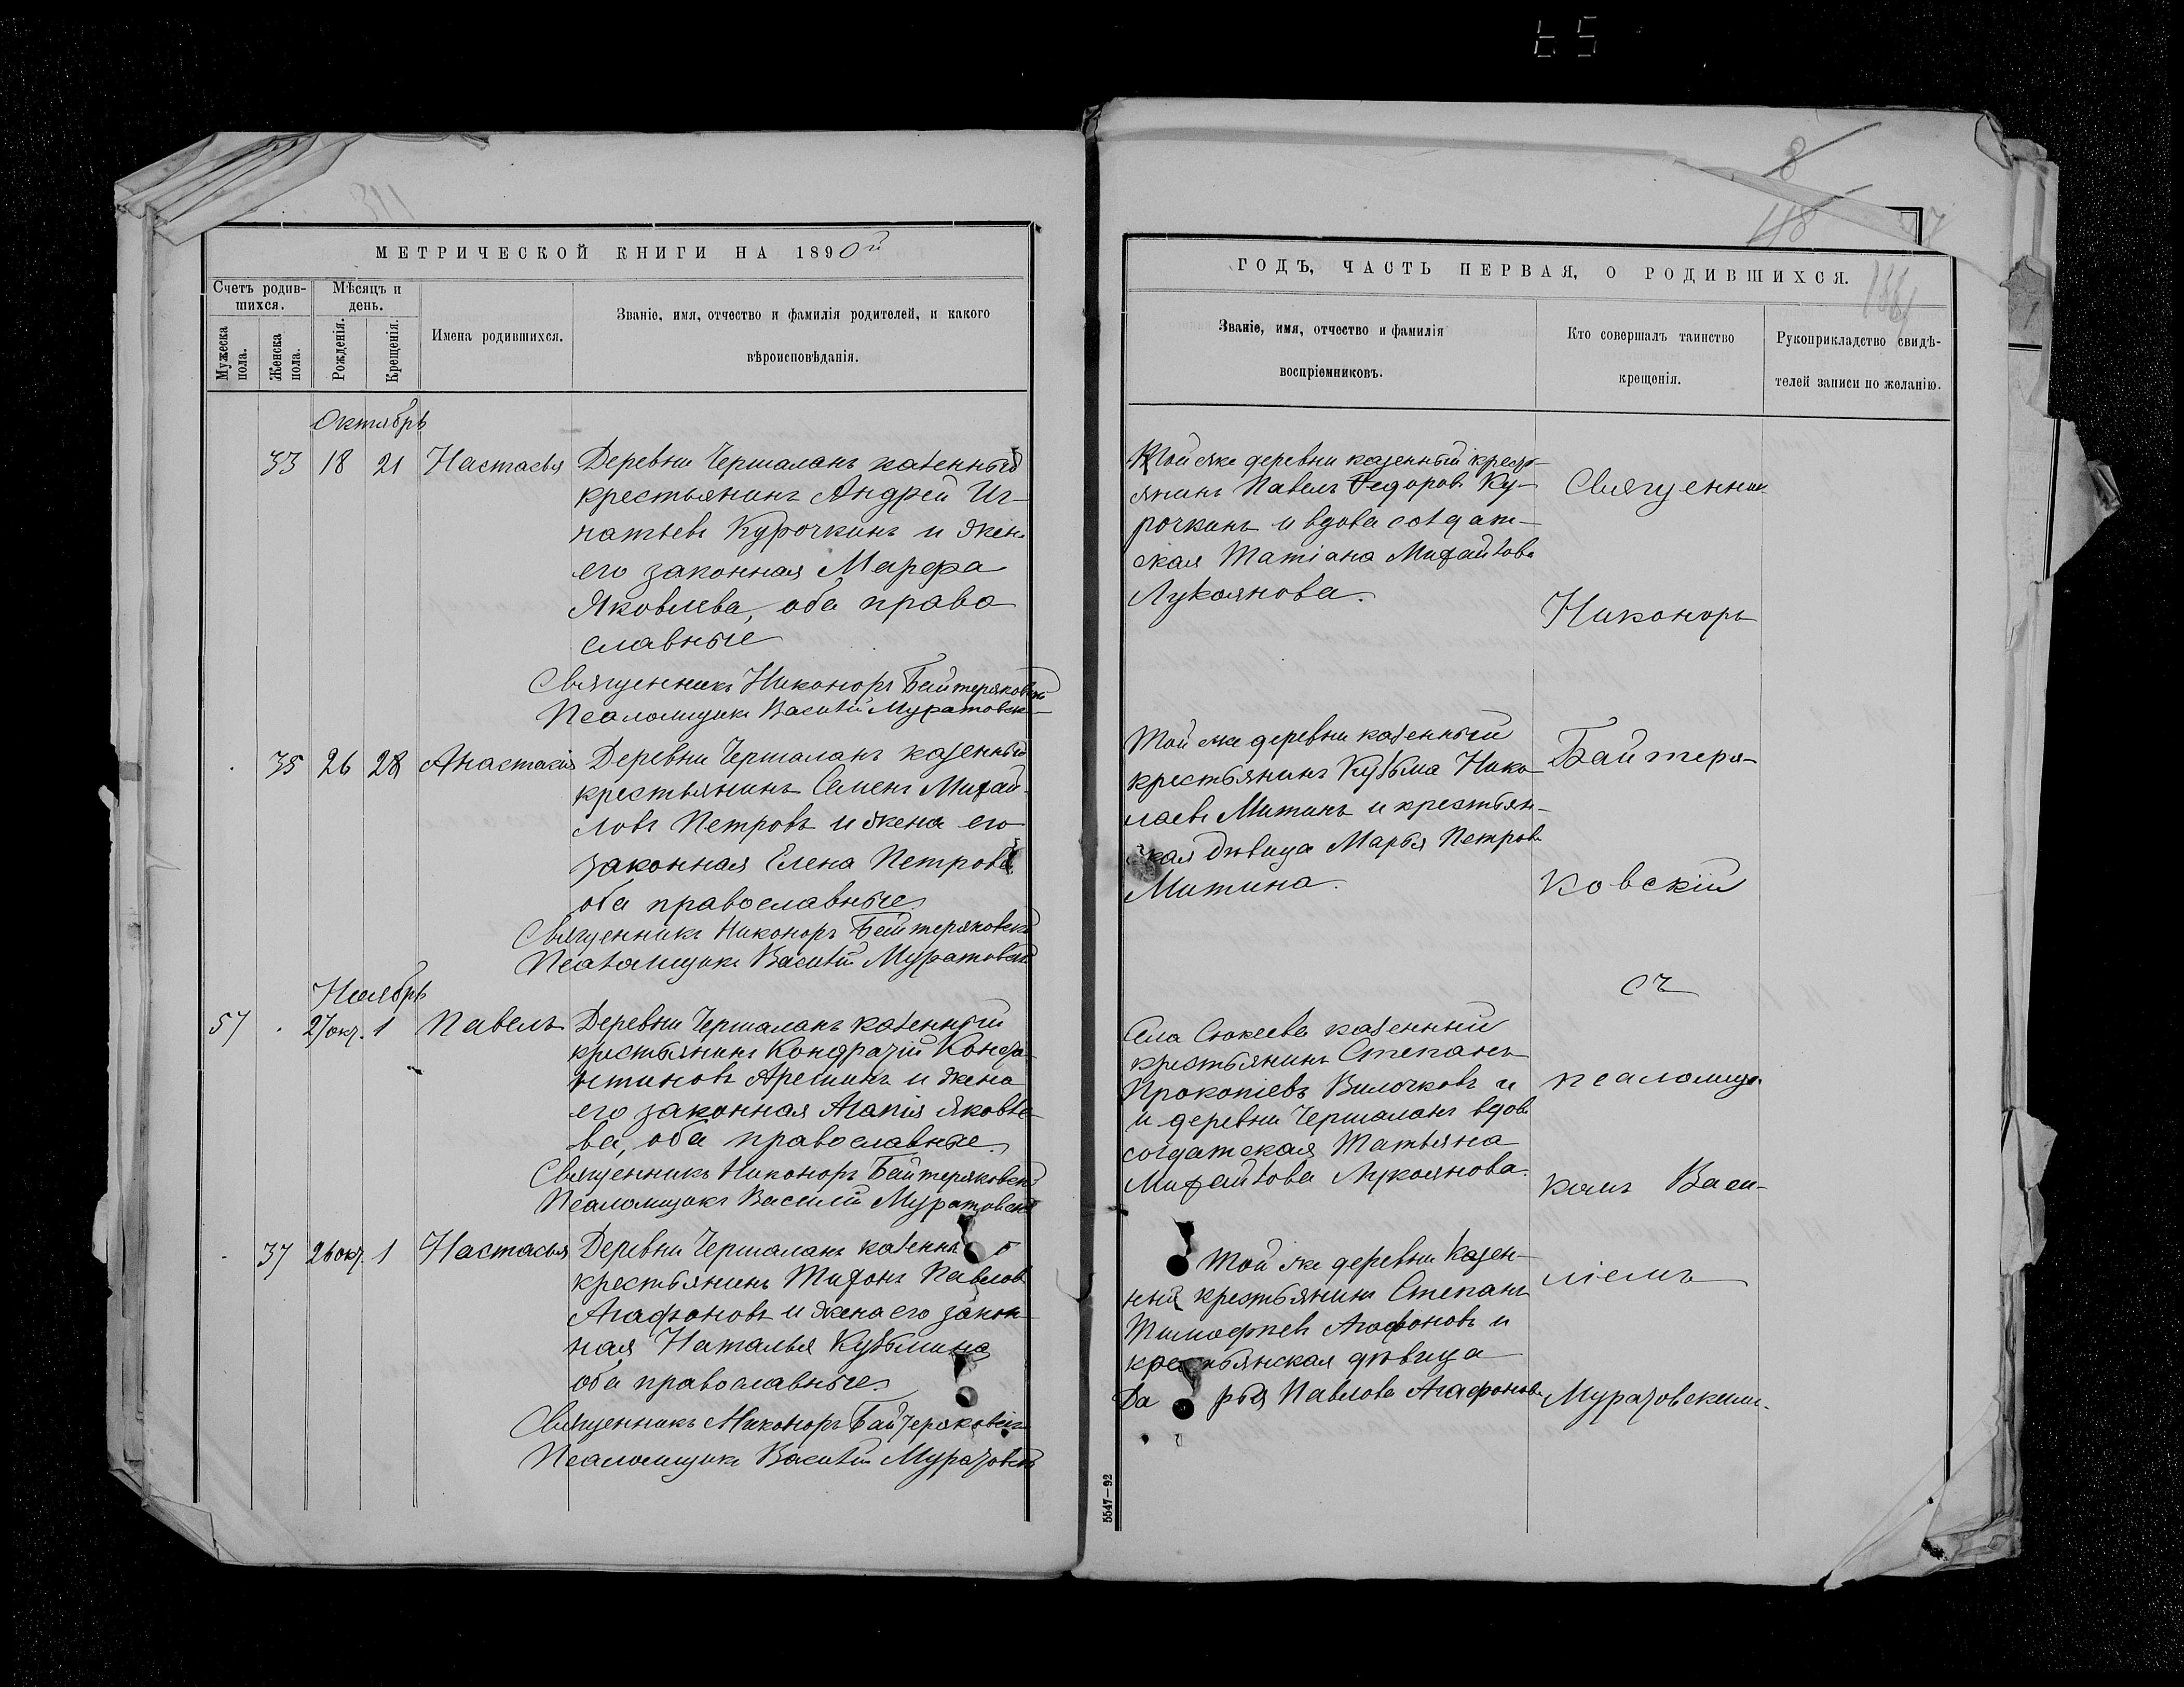 МЕТРИЧЕСКОЙ КНИГИ НА 1890й
Счетъ родив-
шихся.
Мѣсяцъ и
день.
Мужеска
пола.
Женска
пола.
Рожденія.
Крещенія.
Имена родившихся.
Званіе, имя, отчество и фамилія родителей, и какого
вѣроисповѣданія.
Октябрь
33 18 21 Настасья Деревни Чершаланъ казенный
крестьянинъ Андрей Иг-
натьевъ Курочкинъ и жена
его законная Марфа
Яковлева, оба право
славные
Священникъ Никоноръ Байтеряковскій
Псаломщикъ Василій Муратовскій
35 26 28 Анастасія Деревни Чершаланъ казенный
крестьянинъ Семенъ Михай-
ловъ Петровъ и жена его
законная Елена Петрова
оба православные
Священникъ Никоноръ Байтеряковскій
Псаломщикъ Василій Муратовскій
Ноябрь
57 27окт. 1 Павелъ Деревни Чершаланъ казенный
крестьянинъ Кондратій Конста-
нтиновъ Арешинъ и жена
его законная Агапія Яковле-
ва, оба православные
Священникъ Никоноръ Байтеряковскій
Псаломщикъ Василій Муратовскій
37 26окт. 1 Настасья Деревни Чершаланъ казенный
крестьянинъ Тихонъ Павловъ
Агафоновъ и жена его закон-
ная Наталья Кузьмина
оба православные
Священникъ Никоноръ Байтеряковскій
Псаломщикъ Василій Муратовскій
8
118
ГОДЪ, ЧАСТЬ ПЕРВАЯ, О РОДИВШИХСЯ.
Званіе, имя, отчество и фамилія
воспріемниковъ.
Кто совершалъ таинство
крещенія.
Рукоприкладство свидѣ-
телей записи по желанію.
Той же деревни казенный кресть-
янинъ Павелъ Федоровъ Ку-
рочкинъ и вдова солдат-
ская Татіана Михайлова
Лукоянова.
Той же деревни казенный
крестьянинъ Кузьма Нико-
лаевъ Митинъ и крестьян-
ская дѣвица Марья Петрова
Митина.
Села Сюкеева казенный
крестьянинъ Степанъ
Прокопіевъ Вилочковъ и
и деревни Чершаланъ вдова
солдатская Татьяна
Михайлова Лукоянова.
Той же деревни казен-
ный крестьянинъ Степанъ
Тимофеевъ Агафоновъ и
крестьянская дѣвица
Дарья Павлова Агафонова
Священникъ
Никоноръ
Байтеря-
ковскій
съ
псаломщи-
комъ Васи-
ліемъ
Муратовскимъ.
5547—92